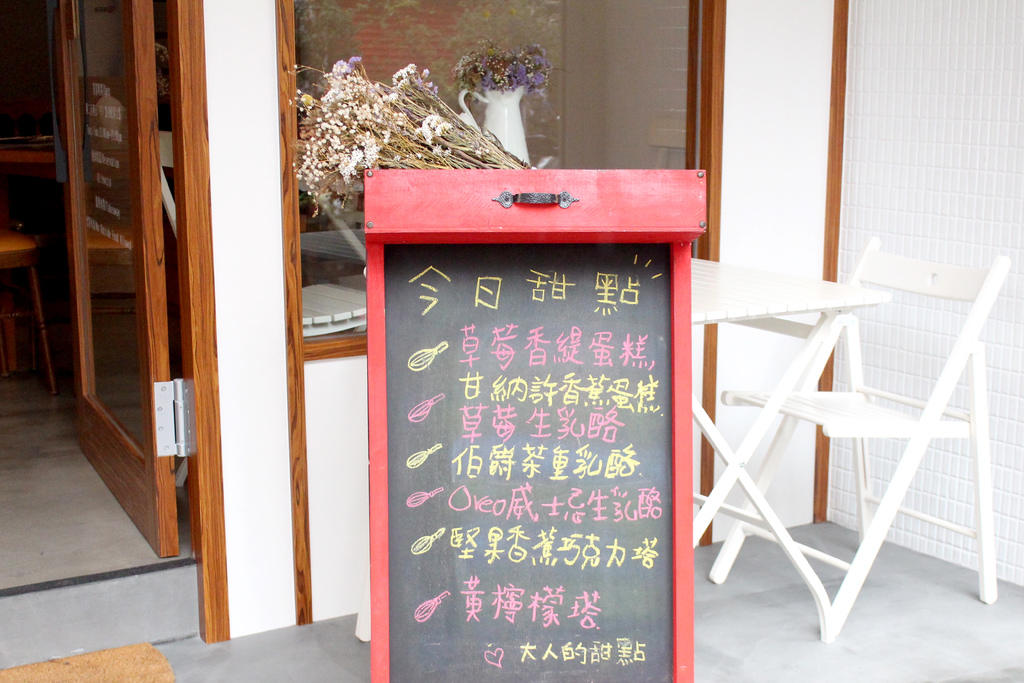 今日甜點
草莓香緹蛋糕
甘納許香蕉蛋糕
草莓生乳酪
伯爵茶重乳酪
Oreo威士忌生乳酪
堅果香蕉巧克力塔
黃檸檬塔
大人的甜點